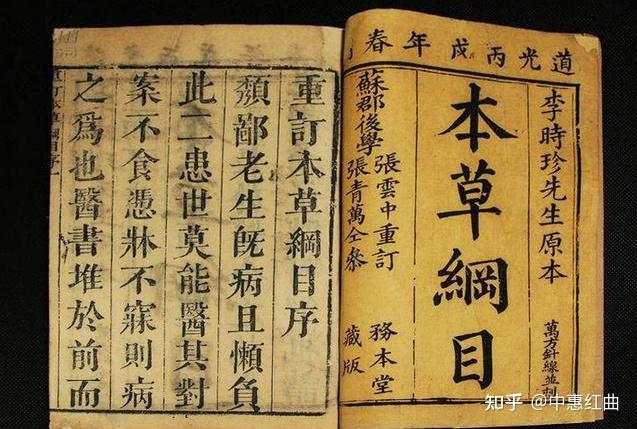 道光丙戌年春
李時珍先生原本
萬方針線並刻
本草綱目
蘇郡後學
張雲中重訂
張青萬仝參
務本堂
藏版
重訂本草綱目序
頽鄙老生旣病且懶負
此二患世莫能醫其對
案不食憑牀不寐則病
之爲也醫書堆於前而
知乎 @中惠红曲